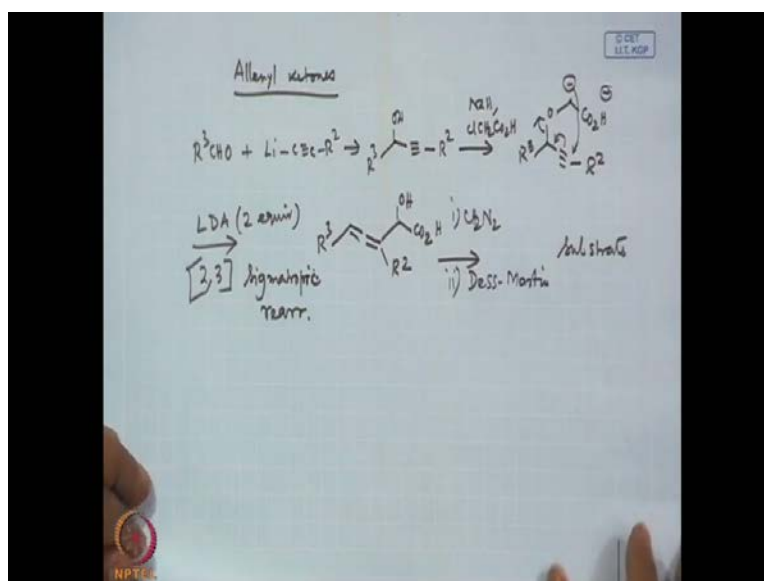 © CET
I.I.T. KGP
Allenyl ketones
R³CHO + Li-C≡C-R² → R³ OH ≡-R² NaH, ClCH₂CO₂H → ⊖ ⊖ O CO₂H R³ ≡-R²
LDA (2 equiv)
[2,3] sigmatropic
rearr.
R³ OH CO₂H R²
i) CH₂N₂
ii) Dess-Martin
substrate
NPTEL